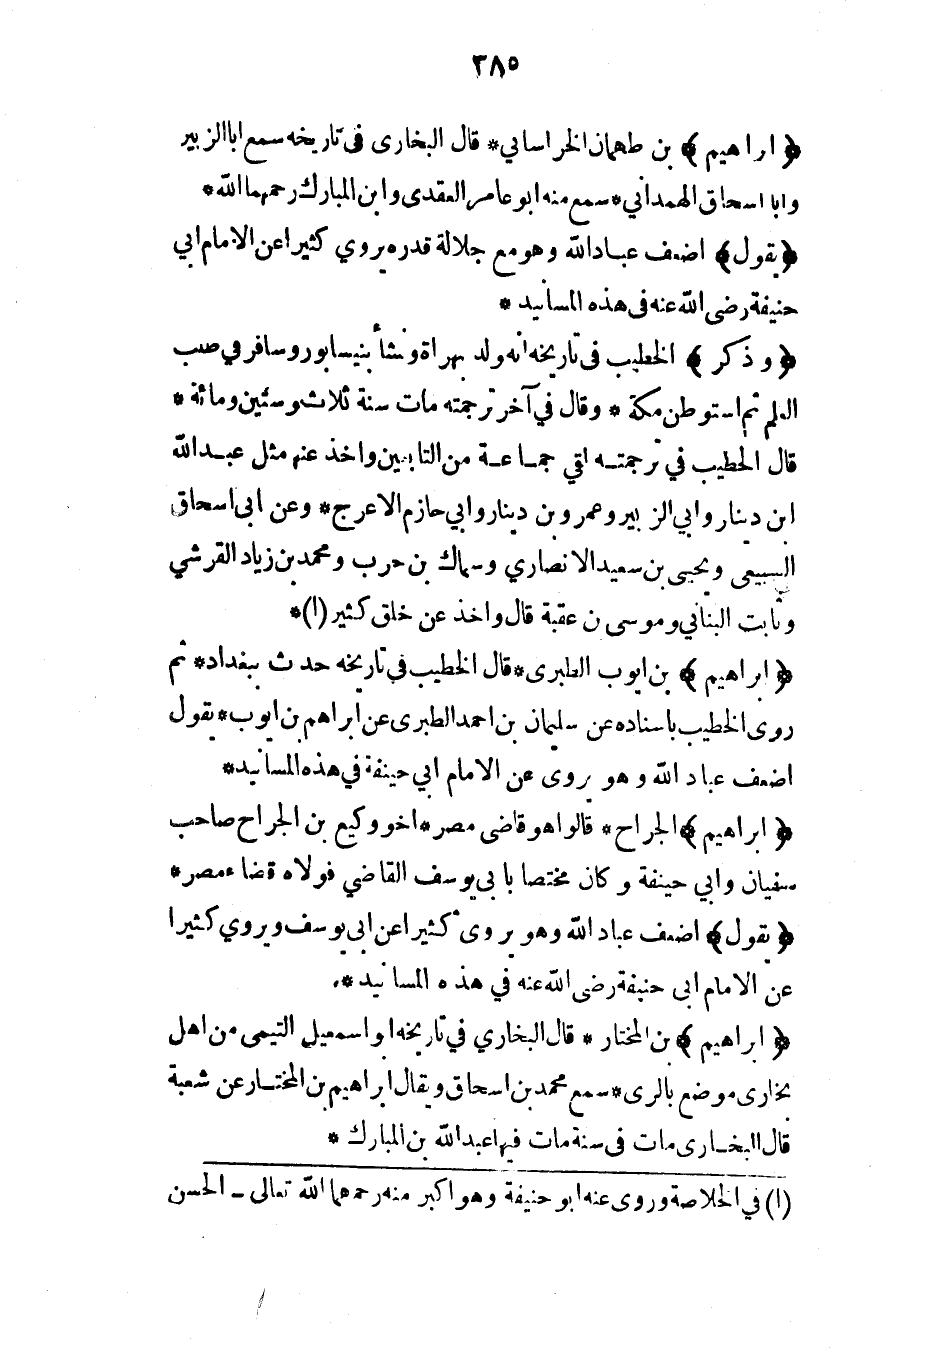 ٣٨٥
﴿ ابراهيم ﴾ بن طهمان الخراساني * قال البخاري في تاريخه سمع ابا الزبير
وابا اسحاق الهمداني * سمع منه ابو عامر العقدى وابن المبارك رحمهما الله *
﴿ يقول ﴾ اضعف عباد الله وهو مع جلالة قدره يروي كثيرا عن الامام ابي
حنيفة رضى الله عنه فى هذه المسانيد *
﴿ وذكر ﴾ الخطيب فى تاريخه انه ولد بهراة ونشأ بنيسابور وسافر في طلب
العلم ثم استوطن مكة * وقال في آخر ترجمته مات سنة ثلاث وستين ومائة *
قال الخطيب في ترجمته لقي جماعة من التابعين واخذ عنهم مثل عبد الله
ابن دينار وابي الزبير وعمرو بن دينار وابي حازم الاعرج * وعن ابى اسحاق
السبيعى ويحيى بن سعيد الانصاري وسماك بن حرب ومحمد بن زياد القرشي
وثابت البناني وموسى بن عقبة قال واخذ عن خلق كثير (١) *
﴿ ابراهيم ﴾ بن ايوب الطبرى * قال الخطيب في تاريخه حدث ببغداد * ثم
روى الخطيب باسناده عن سليمان بن احمد الطبرى عن ابراهيم بن ايوب * يقول
اضعف عباد الله وهو يروى عن الامام ابي حنيفة في هذه المسانيد *
﴿ ابراهيم ﴾ الجراح * قالوا هو قاضى مصر * اخو وكيع بن الجراح صاحب
سفيان وابي حنيفة وكان مختصا بابي يوسف القاضي فولاه قضاء مصر *
﴿ يقول ﴾ اضعف عباد الله وهو يروى كثيرا عن ابي يوسف ويروي كثيرا
عن الامام ابى حنيفة رضى الله عنه في هذه المسانيد *
﴿ ابراهيم ﴾ بن المختار * قال البخاري في تاريخه ابو اسمعيل التيمى من اهل
بخارى موضع بالرى * سمع محمد بن اسحاق ويقال ابراهيم بن المختار عن شعبة
قال البخارى مات فى سنة مات فيها عبد الله بن المبارك *
(١) في الخلاصة وروى عنه ابو حنيفة وهو اكبر منه رحمهما الله تعالى ـ الحسن